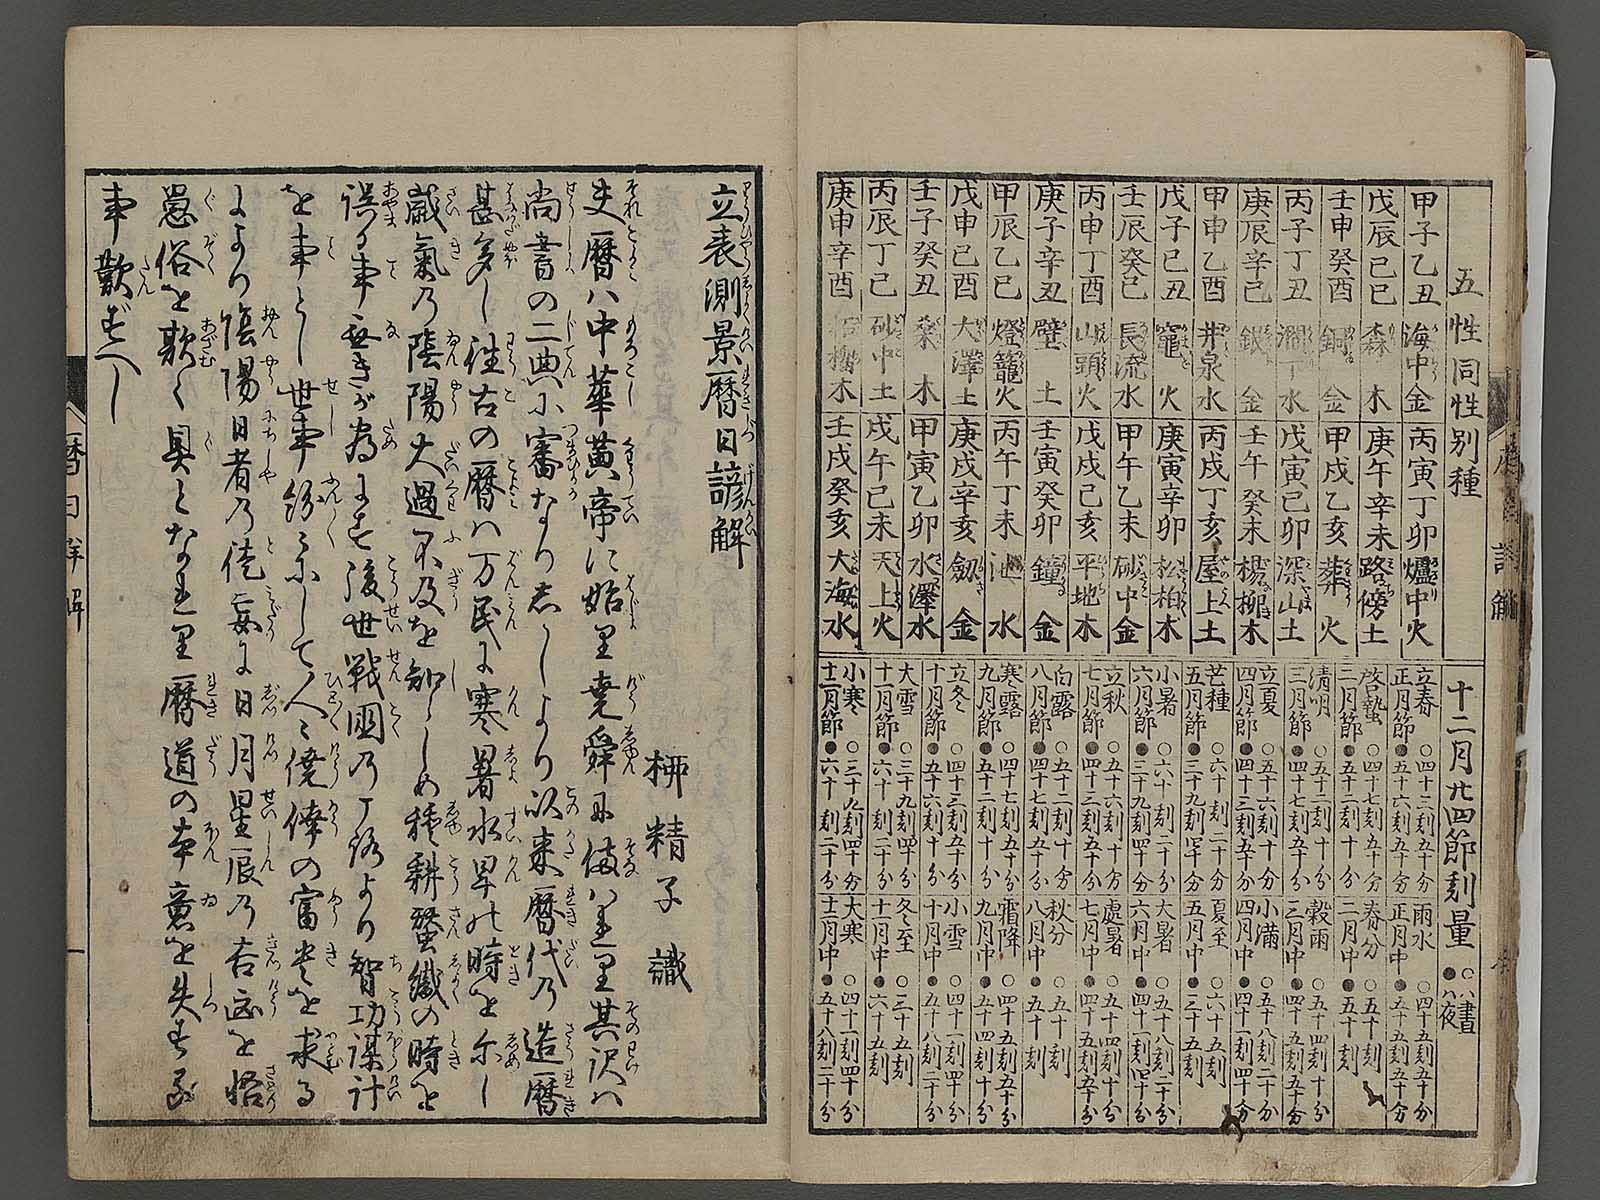 五性同性別種
甲子乙丑 海中金 丙寅丁卯 爐中火
戊辰己巳 森木 庚午辛未 路傍土
壬申癸酉 釼金 甲戌乙亥 葉火
丙子丁丑 澗下水 戊寅己卯 深山土
庚辰辛巳 銀金 壬午癸未 楊柳木
甲申乙酉 井泉水 丙戌丁亥 屋上土
戊子己丑 竈火 庚寅辛卯 松柏木
壬辰癸巳 長流水 甲午乙未 砂中金
丙申丁酉 山頭火 戊戌己亥 平地木
庚子辛丑 壁土 壬寅癸卯 鐘金
甲辰乙巳 燈籠火 丙午丁未 池水
戊申己酉 大澤土 庚戌辛亥 釼金
壬子癸丑 桑木 甲寅乙卯 水澤水
丙辰丁巳 砂中土 戊午己未 天上火
庚申辛酉 柘榴木 壬戌癸亥 大海水
十二月廿四節刻量 ○ハ晝 ●ハ夜
立春 正月節 ○四十三刻五十分 ●五十六刻五十分 雨水 正月中 ○四十五刻五十分 ●五十四刻五十分
啓蟄 二月節 ○四十七刻五十分 ●五十二刻十分 春分 二月中 ○五十刻 ●五十刻
清明 三月節 ○五十二刻十分 ●四十七刻五十分 穀雨 三月中 ○五十四刻十分 ●四十五刻五十分
立夏 四月節 ○五十六刻十分 ●四十三刻五十分 小滿 四月中 ○五十八刻二十分 ●四十一刻四十分
芒種 五月節 ○六十刻二十分 ●三十九刻四十分 夏至 五月中 ○六十五刻 ●三十五刻
小暑 六月節 ○六十刻二十分 ●三十九刻四十分 大暑 六月中 ○五十八刻二十分 ●四十一刻四十分
立秋 七月節 ○五十六刻十分 ●四十三刻五十分 處暑 七月中 ○五十四刻十分 ●四十五刻五十分
白露 八月節 ○五十二刻十分 ●四十七刻五十分 秋分 八月中 ○五十刻 ●五十刻
寒露 九月節 ○四十七刻五十分 ●五十二刻十分 霜降 九月中 ○四十五刻五十分 ●五十四刻十分
立冬 十月節 ○四十三刻五十分 ●五十六刻十分 小雪 十月中 ○四十一刻四十分 ●五十八刻二十分
大雪 十一月節 ○三十九刻四十分 ●六十刻二十分 冬至 十一月中 ○三十五刻 ●六十五刻
小寒 十二月節 ○三十九刻四十分 ●六十刻二十分 大寒 十二月中 ○四十一刻四十分 ●五十八刻二十分
立表測景暦日諺解
柳精子識
夫暦ハ中華黄帝に始里堯舜に備ハ連里其訳ハ
尚書の二典に審なり志かしより以来暦代乃造暦
甚多し往古の暦ハ万民に寒暑水旱の時を示し
歳氣乃陰陽大過不及を知らしめ種耕蚕織の時を
誤る事無きが為にす後世戦國乃頃より智功謀計
を事とし世事紛々にして人々僥倖の富貴を求る
により陰陽日者乃徒妄に日月星辰乃吉凶を悟
愚俗を欺く具となせ里暦道の本意を失す る
事歎ずべし
暦日諺解 一